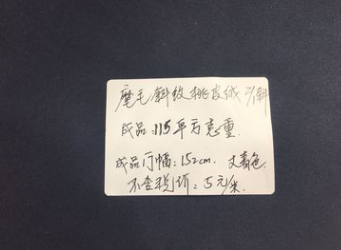 磨毛斜纹桃皮绒 2/1斜
成品:115平方克重.
成品门幅:152cm. 丈青色.
不含税价:5元/米.